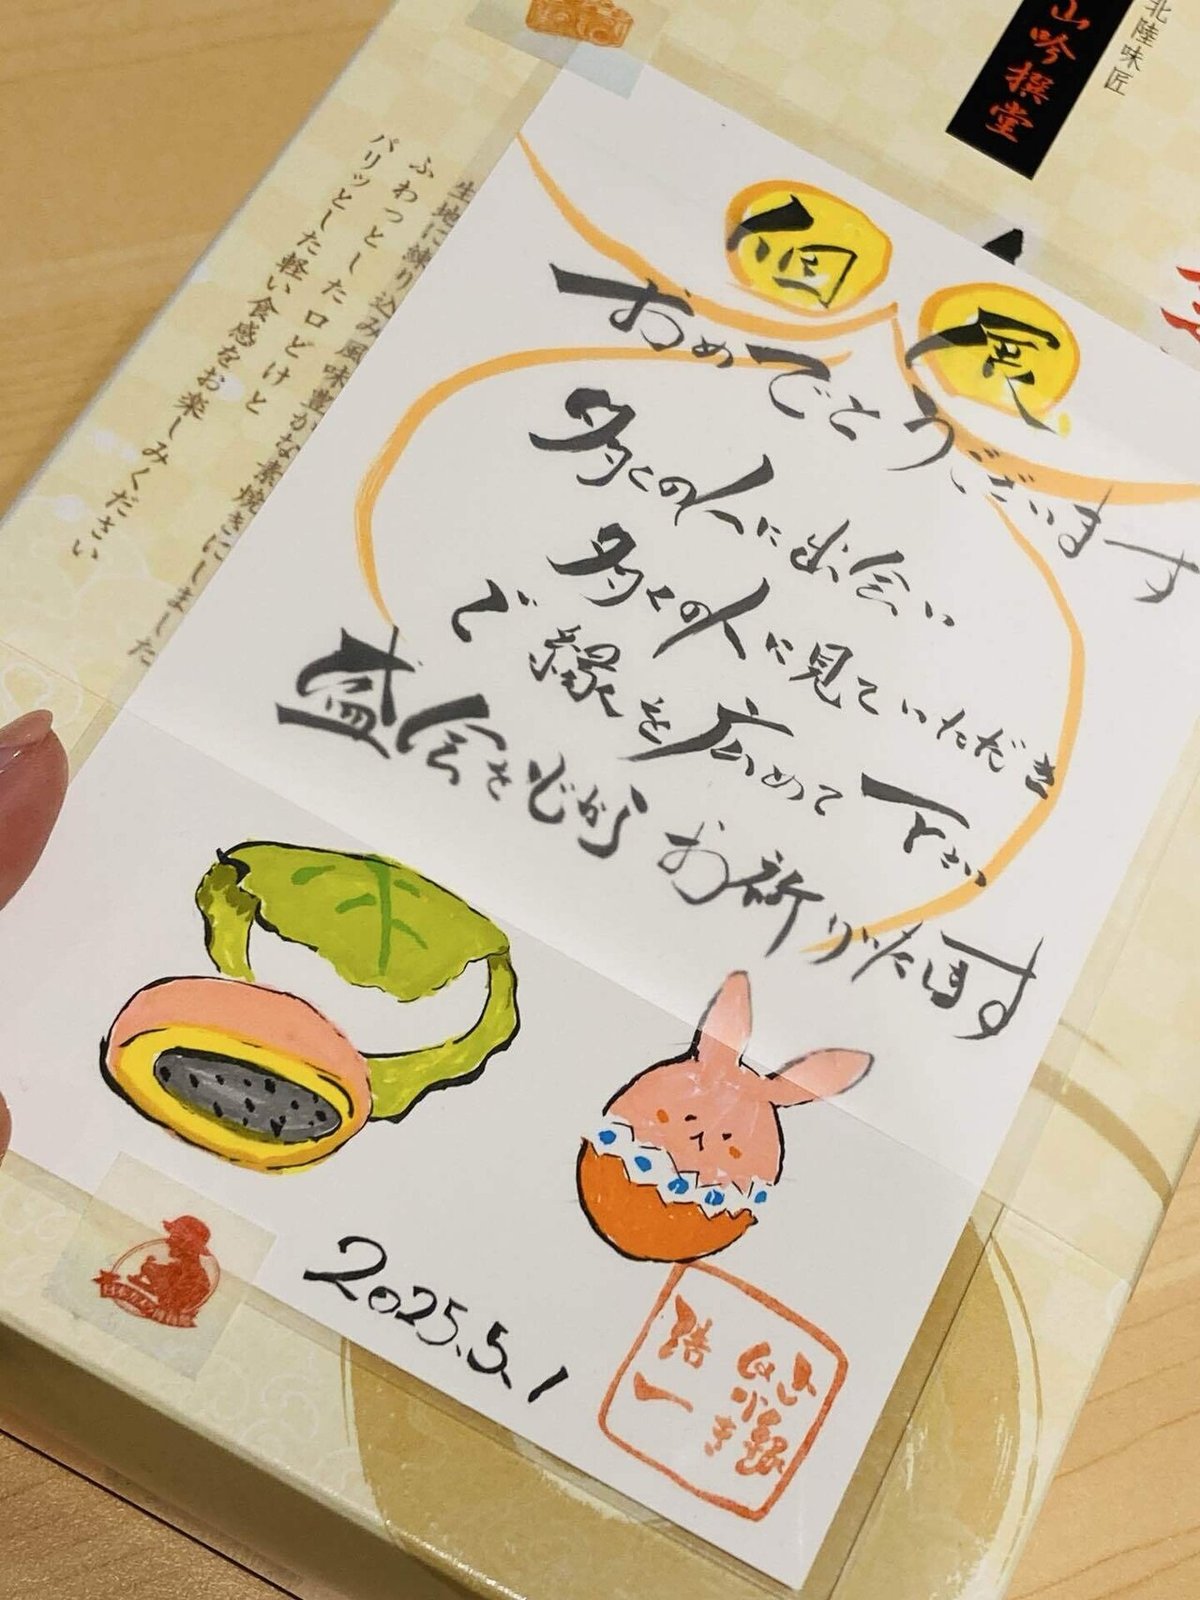 北陸味匠
山吟撰堂
生地に練り込み風味豊かな素焼きにしました
ふわっとした口どけと
パリッとした軽い食感をお楽しみください
個展
おめでとうございます
多くの人に出会い
多くの人に見ていただき
ご縁を広めて下さい
盛会を心から
お祈りいたします
2025.5.1
浩一